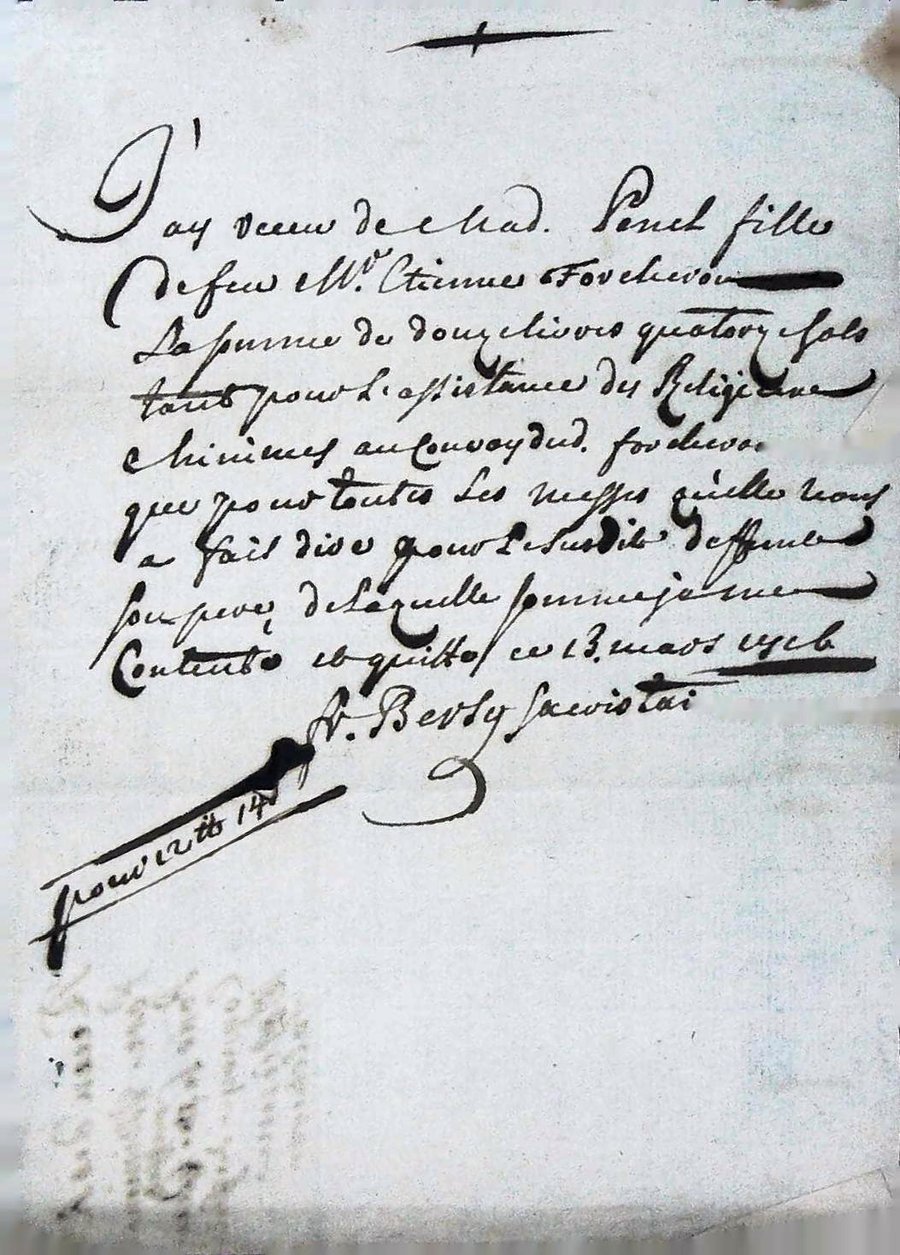 J'ay receu de Mad. Penel fille
de feu Mr. Etienne Forcheron
La somme de douze livres quatorze sols
tant pour L'assistance des Religieux
Minimes au Convoy dud. forcheron
que pour toutes Les messes qu'elle nous
a fait dire pour Le susdit deffunt
son pere, de Laquelle somme je me
Contente et quitte ce 13. mars
fr. sacristai
pour 12 ₶ 14 s